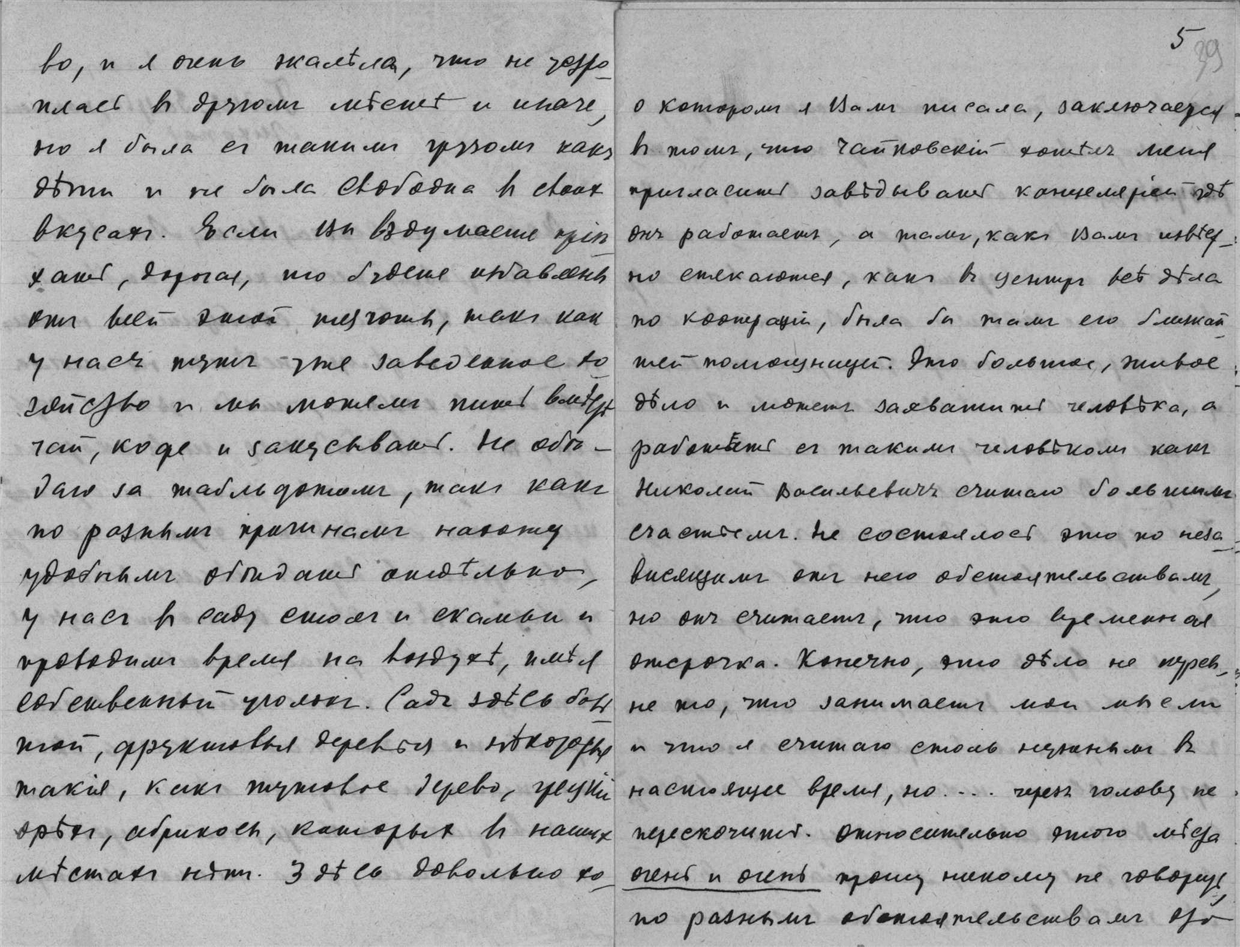 во, и я очень жалѣла, что не устро-
илась въ другомъ мѣстѣ и иначе,
но я была съ такимъ грузомъ какъ
дѣти и не была свободна въ своихъ
вкусахъ. Если Вы вздумаете прiѣ-
хать, дорогая, то будете избавлены
отъ всей этой тягости, такъ как
у насъ тутъ уже заведенное хо-
зяйство и мы можемъ пить вмѣстѣ
чай, кофе и закусывать. Не обѣ-
даю за табльдотомъ, такъ какъ
по разнымъ причинамъ нахожу
удобнымъ обѣдать отдѣльно,
у насъ въ саду столъ и скамьи и
проводимъ время на воздухѣ, имѣя
собственный уголокъ. Садъ здѣсь боль-
шой, фруктовыя деревья и нѣкоторыя
такiя, какъ тутовое дерево, грецкiй
орѣхъ, абрикосы, которыхъ въ нашихъ
мѣстахъ нѣтъ. Здѣсь довольно хо-
5
39
о которомъ я Вамъ писала, заключается
въ томъ, что Чайковскiй хотѣлъ меня
пригласить завѣдывать канцелярiей гдѣ
онъ работаетъ, а тамъ, какъ Вамъ извѣст-
но стекаются, какъ въ центръ всѣ дѣла
по кооперацiи, была бы тамъ его ближай-
шей помощницей. Это большое, живое
дѣло и можетъ захватить человѣка, а
работать съ такимъ человѣкомъ какъ
Николай Васильевичъ считаю большимъ
счастьемъ. Не состоялось это по неза-
висящимъ отъ него обстоятельствамъ,
но онъ считаетъ, что это временная
отсрочка. Конечно, это дѣло не
не то, что занимаетъ мои мысли
и что я считаю столь нужнымъ въ
настоящее время, но.... черезъ голову не
перескочить. Относительно этого мѣста
очень и очень прошу никому не говорить,
по разнымъ обстоятельствамъ это